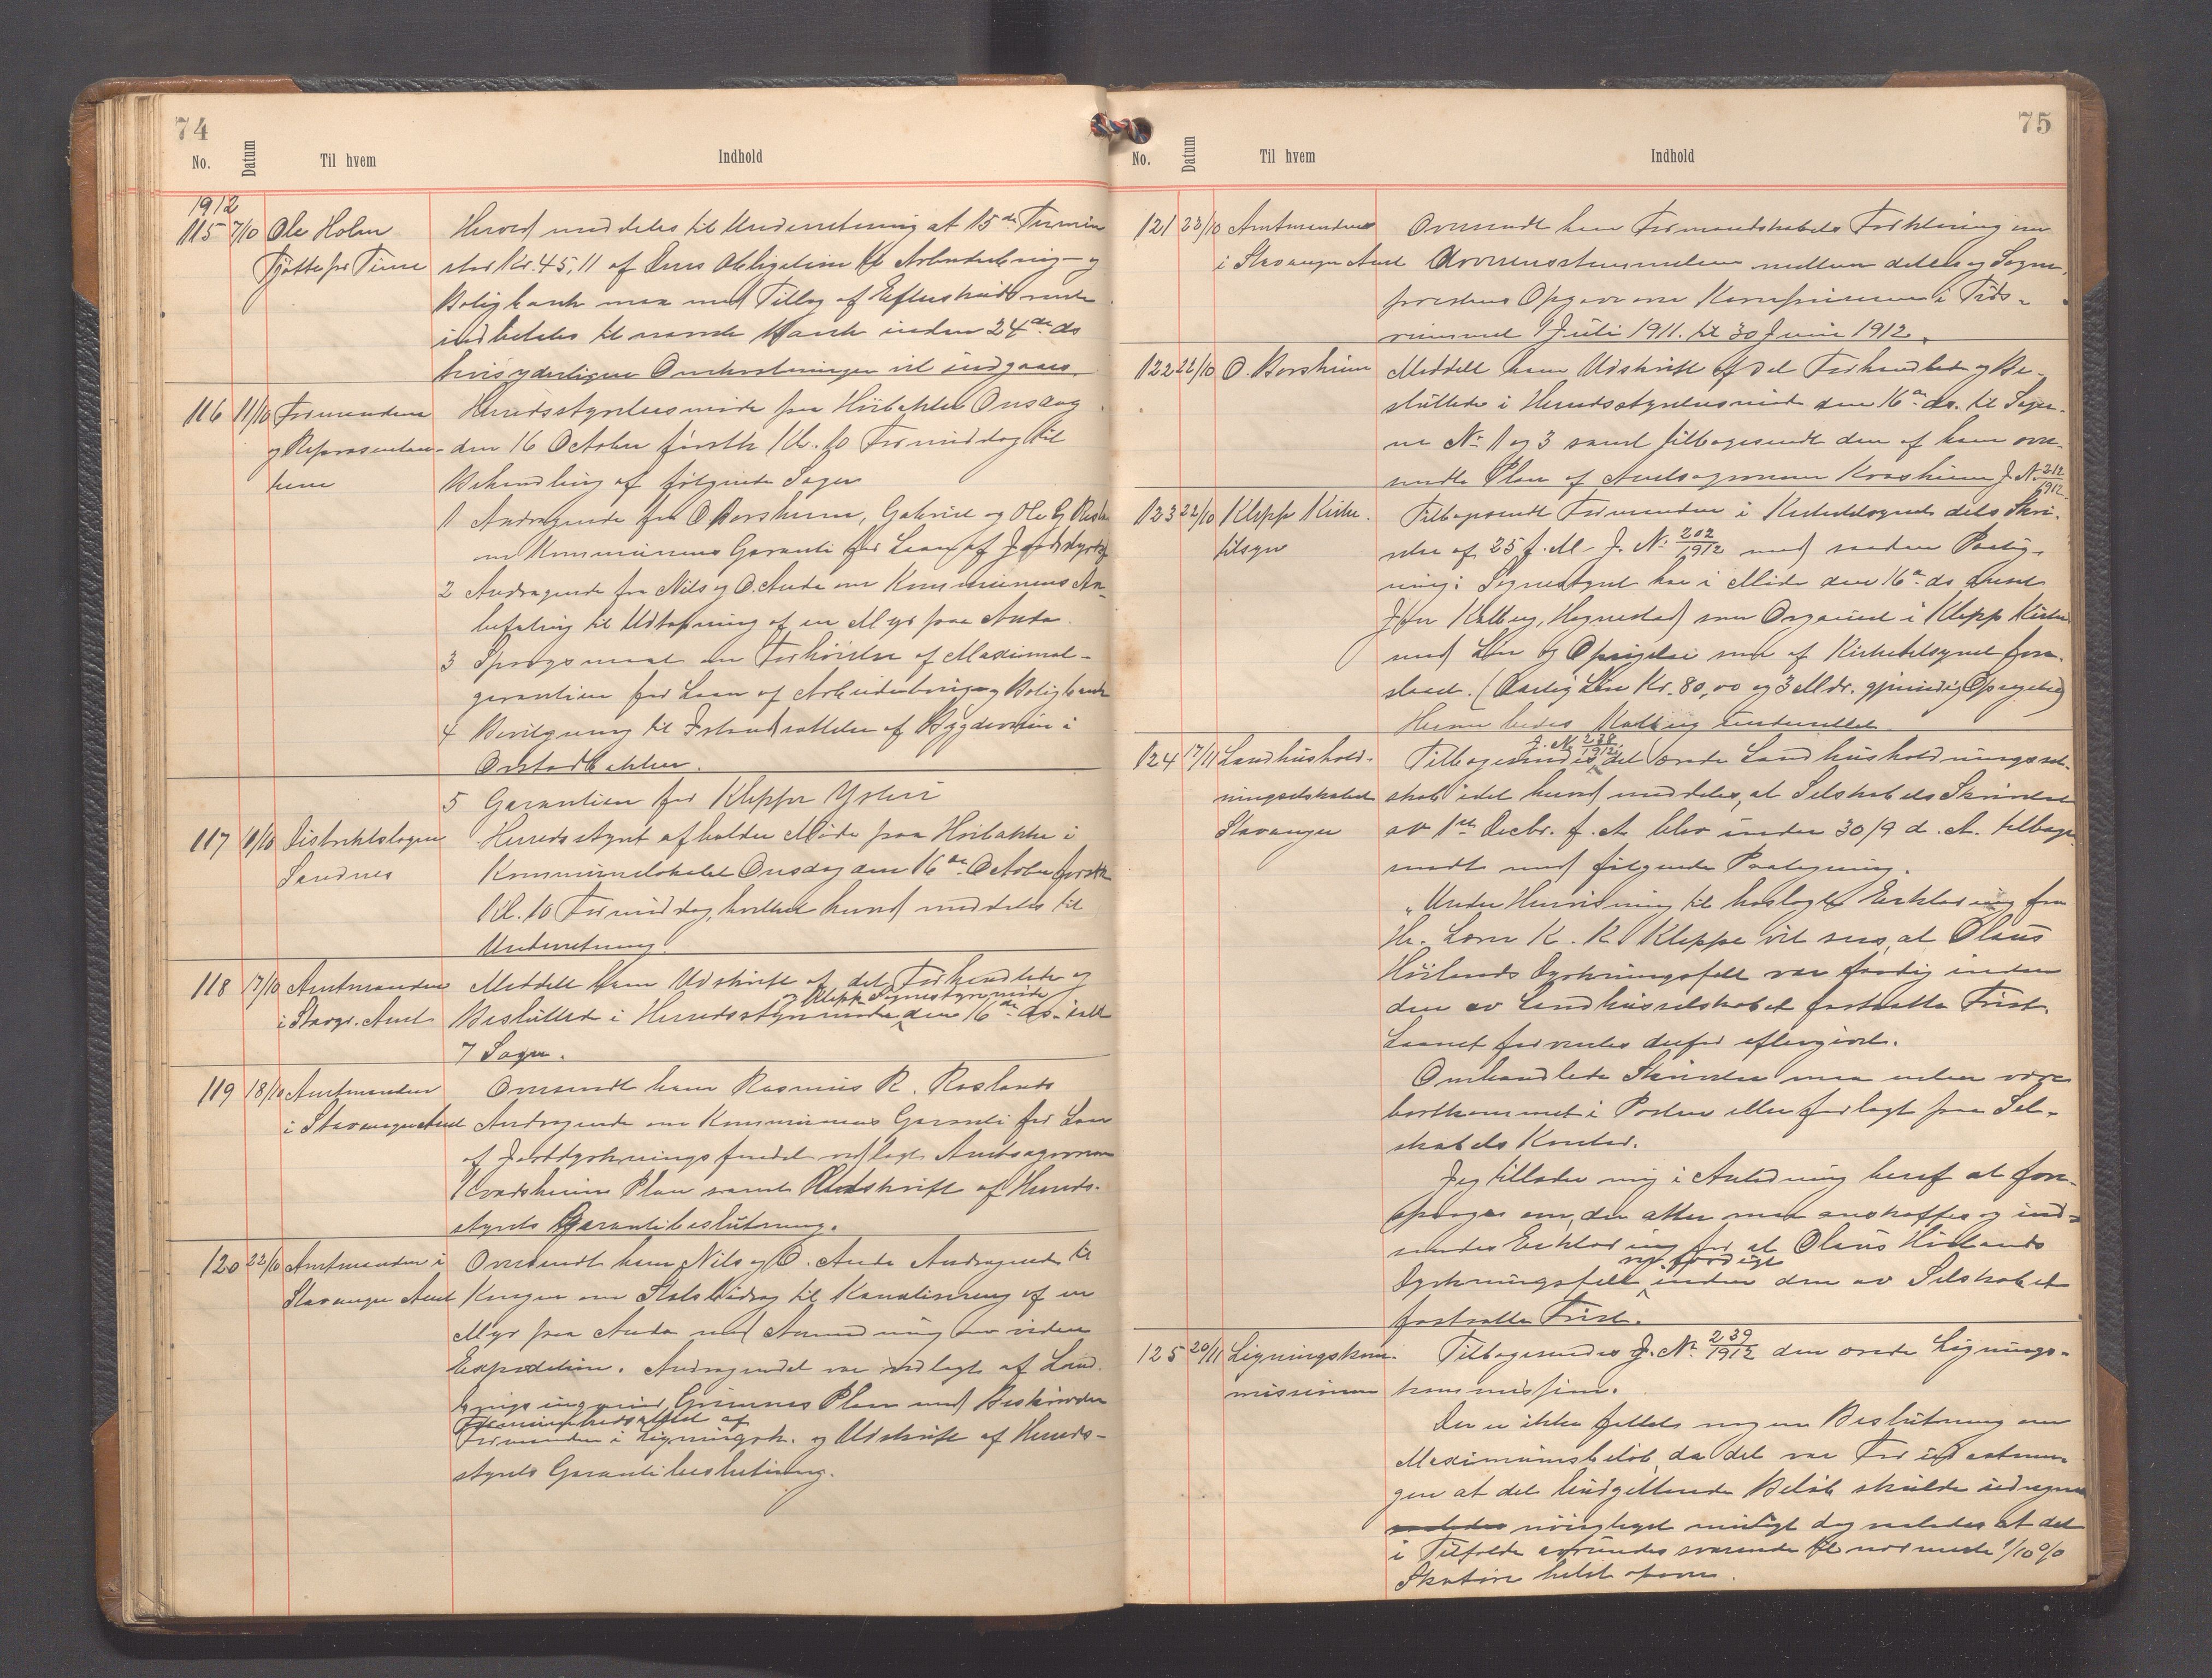 74
No. Datum Til hvem Indhold
1912
115 7/10 Ole Holm Herved meddeles til Underretning at 15de Termin
Tjøtta pr Time stor Kr. 45,11 af Deres Obligation til Arbeiderbrug- og
Boligbank maa med Tillæg af Efterskudsrente
indbetales til nævnte Bank inden 24de ds
hvis yderligere Omkostninger vil undgaaes.
116 11/10 Formændene Herredsstyrelsesmøde paa Hørbakken Onsdag
og Repræsentan- den 16 October førstk. Kl. 10 Formiddag til
terne Behandling af følgende Sager
1 Andragende fra O Borsheim, Gabriel og Ole G.
om Kommunens Garanti for Laan af Jorddyrkfd
2 Andragende fra Nils og O. Anda om Kommunens An-
befaling til Udtapning af en Myr paa Anda.
3 Spørgsmaal om Forhøielse af Maximal-
garantien for Laan af Arbeiderbrug- og Boligbank
4 Bevilgning til Istandsættelse af Bygdeveien i
Orstadbakken.
5 Garantien for Kleppe Ysteri
117 11/10 Distriktslægen Herredsstyret afholder Møde paa Hørbakken i
Sandnes Kommunelokalet Onsdag den 16de October førstk
Kl. 10 Formiddag, hvilket herved meddeles til
Underretning.
118 17/10 Amtmanden Meddelt ham Udskrift af det Forhandlede og
og Klepp Sognestyremøde
i Stavgr. Amt Besluttede i Herredsstyremøde den 16de ds. ialt
7 Sager.
119 18/10 Amtmanden Oversendt ham Rasmus R. Roslands
i Stavanger Amt Andragende om Kommunens Garanti for Laan
af Jorddyrkningsfondet vedlagt Amtsagronom
Kvadsheims Plan samt Udskrift af Herreds-
styrets Garantibeslutning.
120 22/10 Amtmanden i Oversendt ham Nils og O. Anda Andragende til
Stavanger Amt Kongen om Statsbidrag til Kanalisering af en
Myr paa Anda med Anmodning om videre
Expedition. Andragendet var vedlagt af Land-
brugsingeniør Grimnes Plan med Beskrivelse
af
Formanden i Ligningsk. og Udskrift af Herreds-
styrets Garantibeslutning.
75
No. Datum Til hvem Indhold
121 23/10 Amtmanden Oversendt ham Formandskabets Forklaring om
i Stavanger Amt Overensstemmelsen mellem dettes og Sogne-
præstens Opgave over i Tids-
rummet 1 Juli 1911. til 30 Juni 1912.
122 22/10 O. Borsheim Meddelt ham Udskrift af det Forhandlede og Be-
sluttede i Herredsstyrelsesmøde den 16de ds. til Sager-
ne No 1 og 3 samt tilbagesendt den af ham over-
sendte Plan af Amtsagronom Kvadsheim J. No 212/1912
123 22/10 Klepp Kirke- Tilbagesendt Formanden i Kirketilsynet dets Skri-
tilsyn velse af 25 f. M. J. No 202/1912 med saadan Paateg-
ning: Sognestyret har i Møde den 16de ds ansat
Kalberg, Hognestad som Organist i Klepp Kirke
med Løn og Opsigelse som af Kirketilsynet fore-
slaaet. (Aarlig Løn Kr. 80,00 og 3 Mdr. gjensidig Opsigelse)
Herom bedes Kalberg underrettet
J. No 238/1912
124 17/11 Landhushold- Tilbagesendes det ærede Landhusholdningssel-
ningsselskabet skab idet herved meddeles, at Selskabets Skrivelse
Stavanger av 1ste Decbr. f. A. blev under 30/9 d. A. tilbage-
sendt med følgende Paategning.
"Under Henvisning til hoslagte Erklæring fra
Hr. Lærer K. K. Kleppe vil sees, at Olaus
Hørlands Dyrkningsfelt var færdig inden
den av Landhusselskabet fastsatte Frist.
Laanet forventes derfor eftergivet.
Omhandlede Skrivelse maa enten være
bortkommet i Posten eller forlagt paa Sel-
skabets Kontor.
Jeg tillader mig i Anledning heraf at fore-
spørges om, der atter maa anskaffes og ind-
sendes Erklæring for at Olaus Hørlands
var færdigt
Dyrkningsfelt inden den av Selskabet
fastsatte Frist.
125 20/11 Ligningskom- Tilbagesendes J. No 239/1912 den ærede Lignings-
missionen kommission.
Der er ikke fattet nogen Beslutning om
Maximumsbeløb, da det var Forudsætnin-
gen at det Beløb skulde udregnes
nøiagtigst muligt dog saaledes at det
i Tilfælde avrundes svarende til nærmeste 1/10 %
Skatøre helst opover.